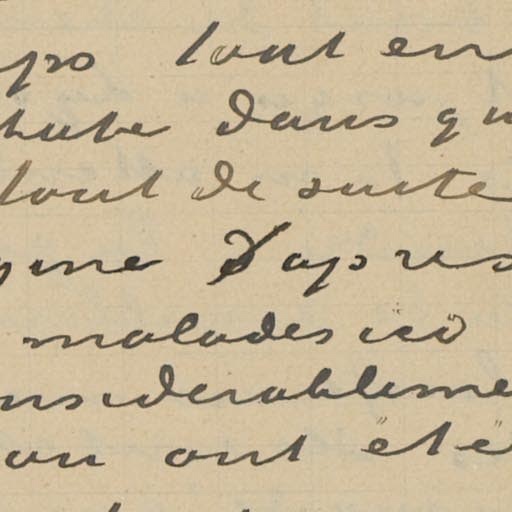 tout en
dans qu
tout de suite
gine D'apres
malades ici
nsiderableme
ou ont été